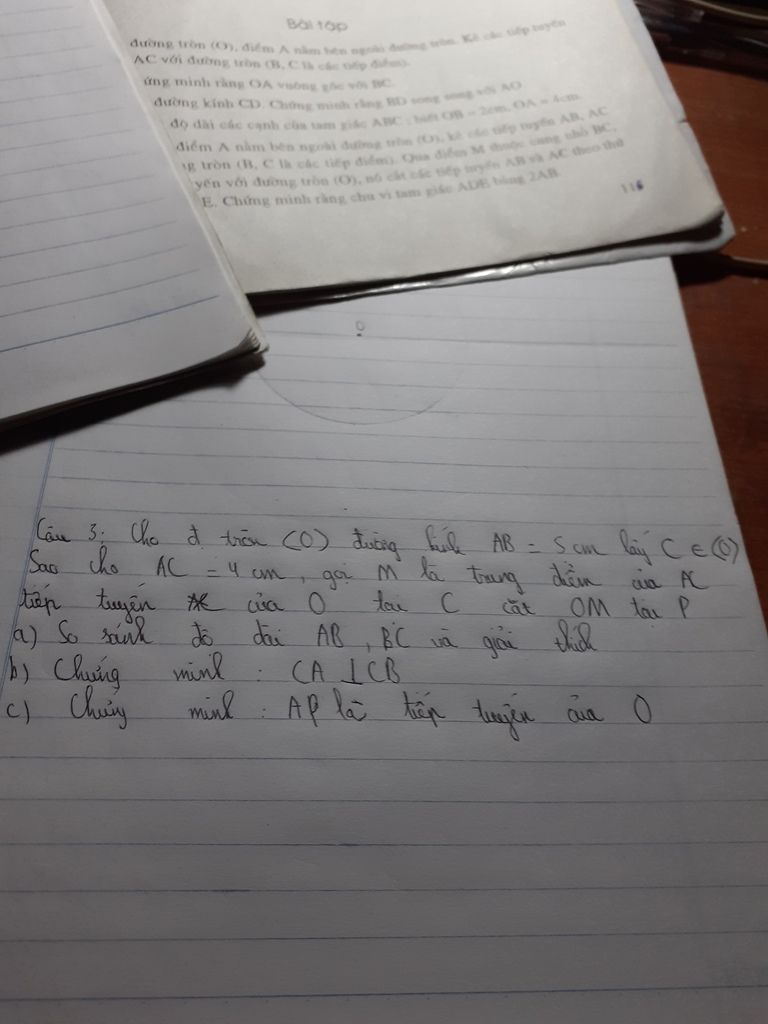 Bài tập
đường tròn (O), điểm A nằm bên ngoài đường tròn. Kẻ các tiếp tuyến
AC với đường tròn (B, C là các tiếp điểm).
ứng minh rằng OA vuông góc với BC.
đường kính CD. Chứng minh rằng BD song song với AO
độ dài các cạnh của tam giác ABC ; biết OB = 2cm, OA = 4cm.
điểm A nằm bên ngoài đường tròn (O), kẻ các tiếp tuyến AB, AC
ng tròn (B, C là các tiếp điểm). Qua điểm M thuộc cung nhỏ BC,
yến với đường tròn (O), nó cắt các tiếp tuyến AB và AC theo thứ
E. Chứng minh rằng chu vi tam giác ADE bằng 2AB.
116
O
Câu 3: Cho đ tròn (O) đường kính AB = 5 cm lấy C ∈ (O)
Sao cho AC = 4 cm, gọi M là trung điểm của AC
tiếp tuyến của O tại C cắt OM tại P
a) So sánh độ dài AB, BC và giải thích
b) Chứng minh : CA ⊥ CB
c) Chứng minh : AP là tiếp tuyến của O